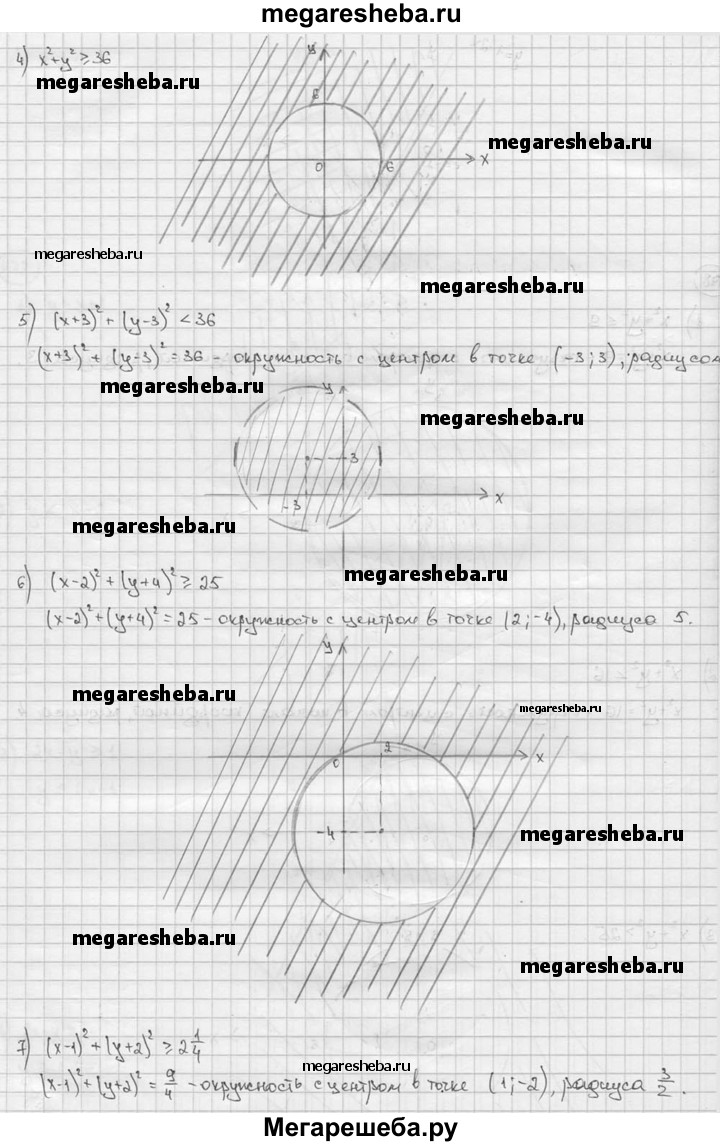 megaresheba.ru
4) x²+y² ≥ 36
megaresheba.ru
y
6
megaresheba.ru
0 6 x
megaresheba.ru
megaresheba.ru
5) (x+3)² + (y-3)² < 36
(x+3)² + (y-3)² = 36 - окружность с центром в точке (-3; 3), радиусом
megaresheba.ru
y
megaresheba.ru
3
-3 x
megaresheba.ru
megaresheba.ru
6) (x-2)² + (y+4)² ≥ 25
(x-2)² + (y+4)² = 25 - окружность с центром в точке (2; -4), радиуса 5.
y
megaresheba.ru
megaresheba.ru
0 2 x
-4
megaresheba.ru
megaresheba.ru
megaresheba.ru
7) (x-1)² + (y+2)² ≥ 2 1/4
megaresheba.ru
(x-1)² + (y+2)² = 9/4 - окружность с центром в точке (1; -2), радиуса 3/2.
Мегарешеба.ру